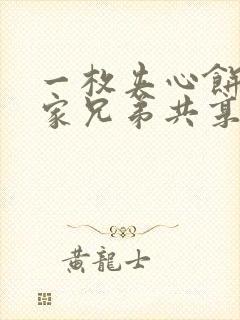 一枚夹心餅
家兄弟共享
黄龍士